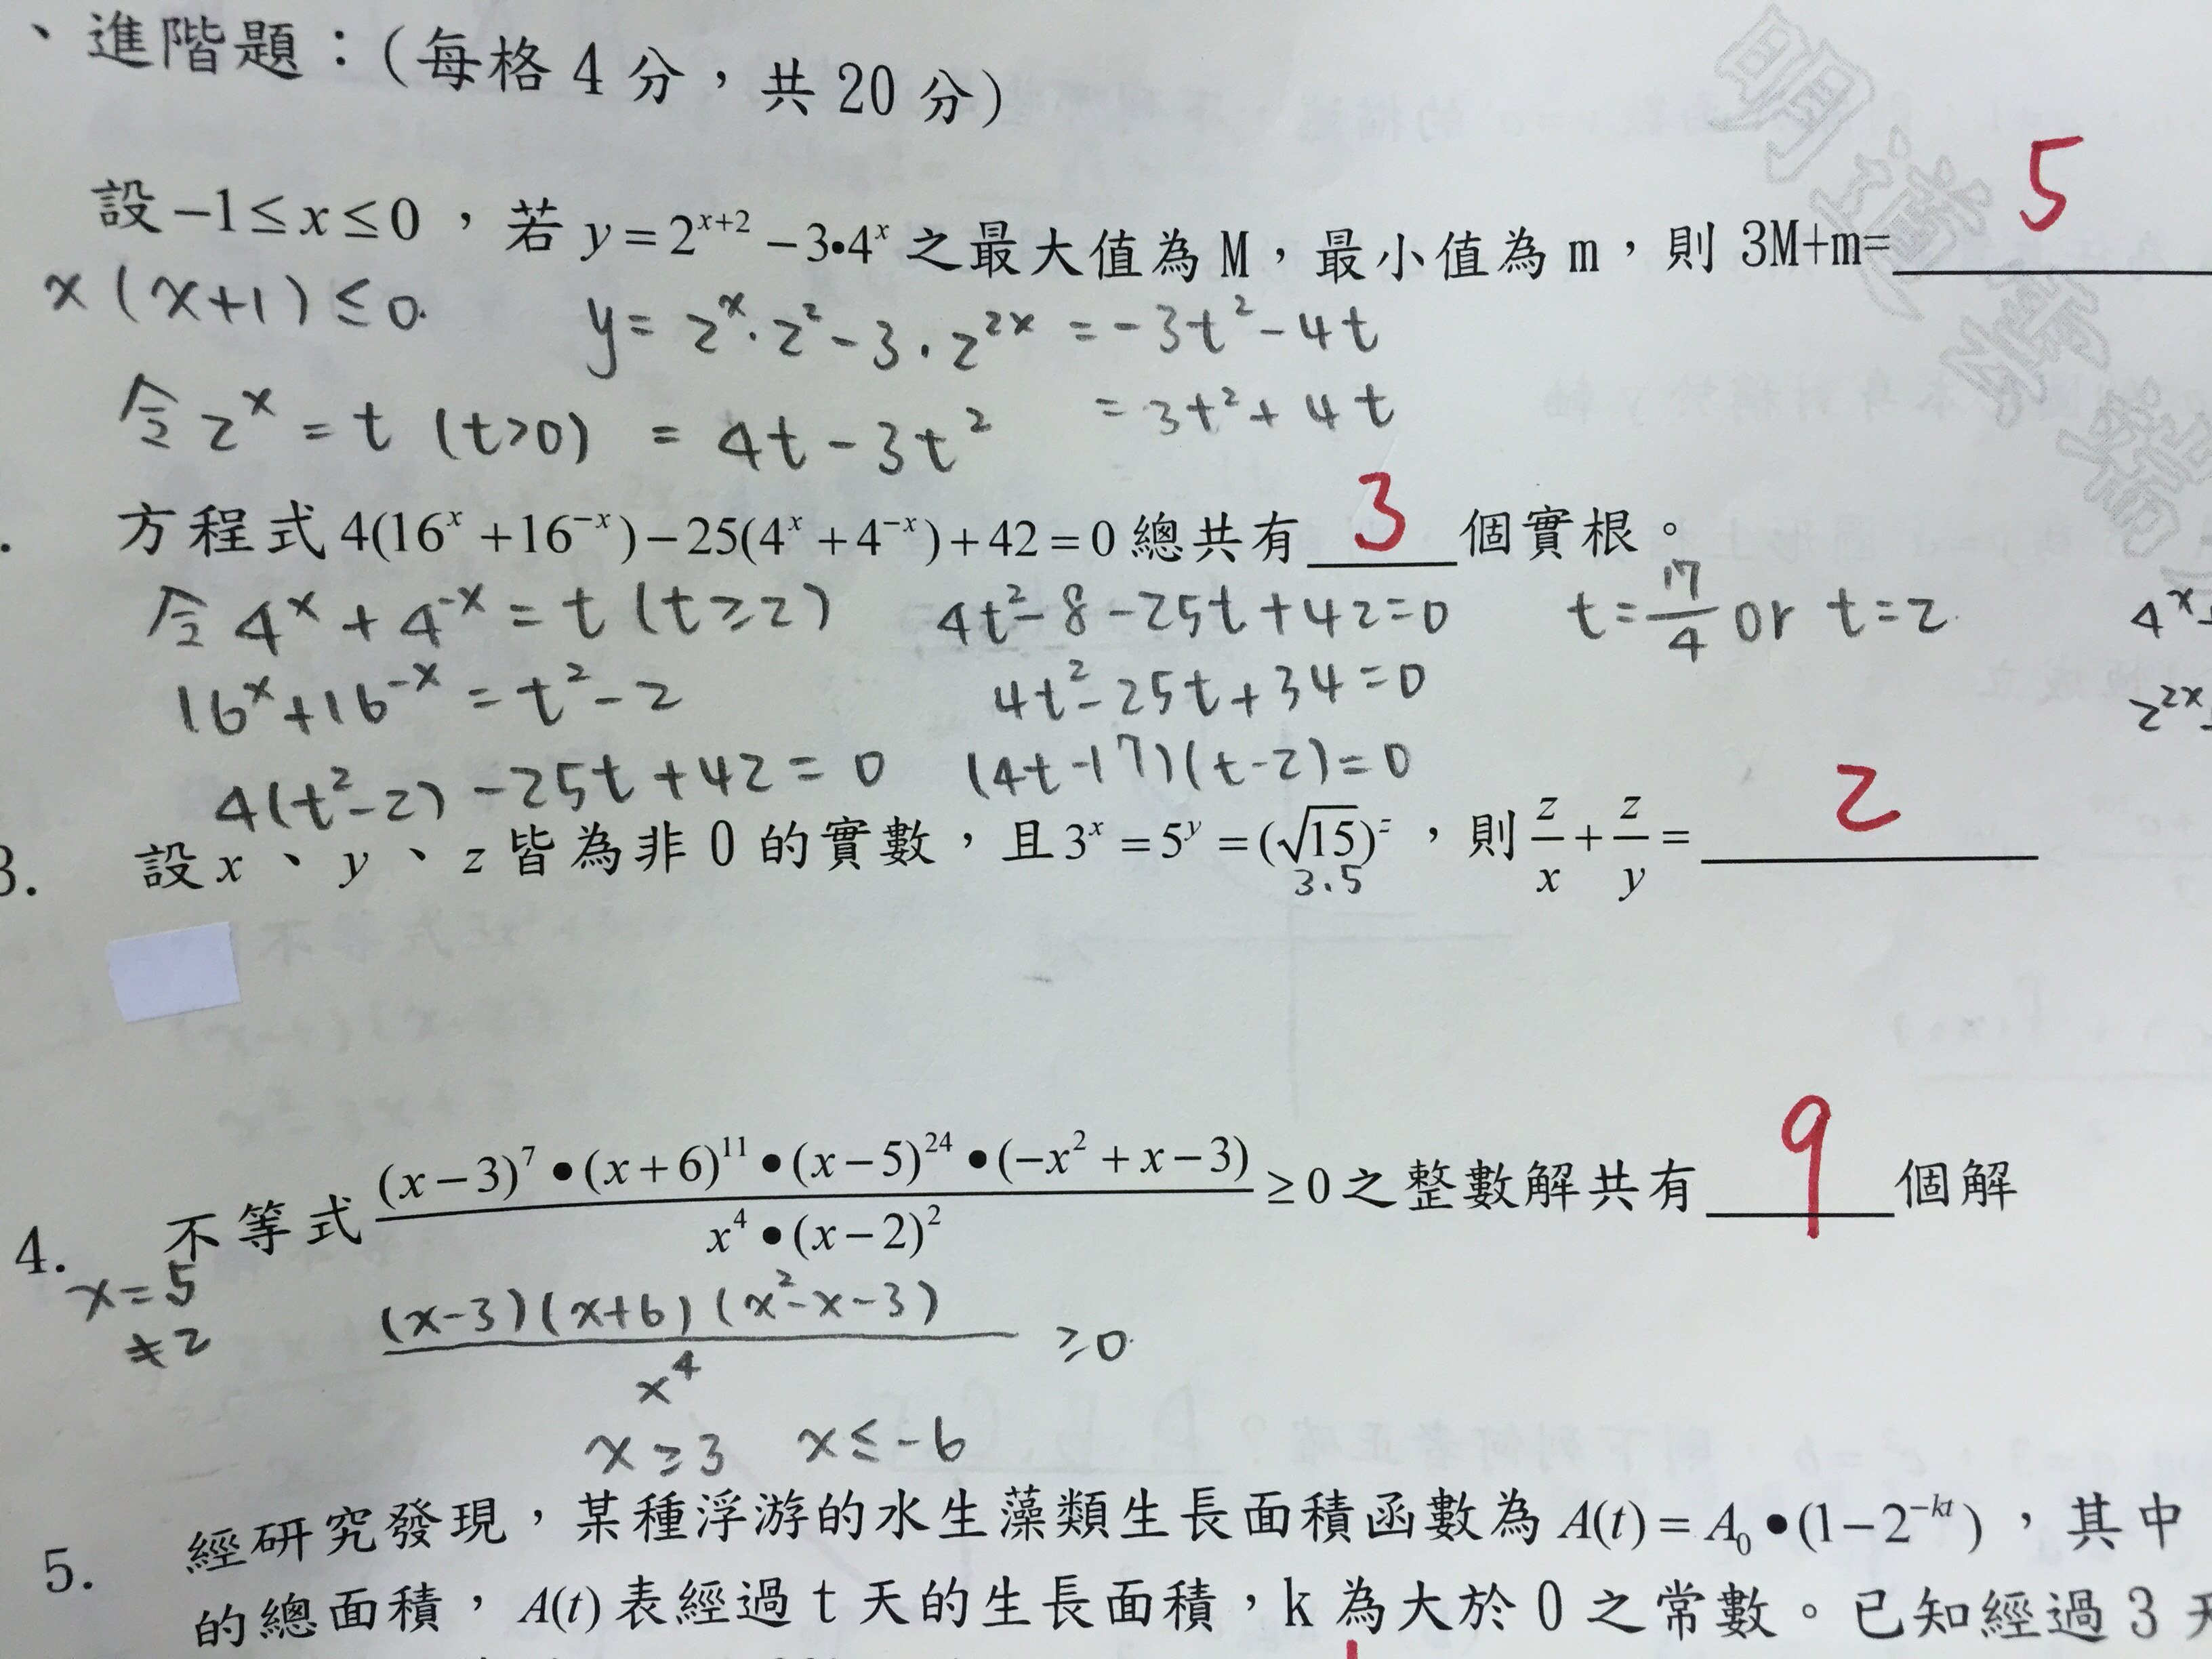 、進階題：(每格4分，共20分)
設 -1≤x≤0 ，若 y=2^{x+2}-3•4^x 之最大值為M，最小值為m，則 3M+m= 5
x(x+1)≤0.
y=2^x·2^2-3·2^{2x} =-3t^2-4t
令2^x=t (t>0) =4t-3t^2 =3t^2+4t
. 方程式 4(16^x+16^{-x})-25(4^x+4^{-x})+42=0 總共有 3 個實根。
令 4^x+4^{-x}=t (t≥2) 4t^2-8-25t+42=0 t=17/4 or t=2 4^x
16^x+16^{-x}=t^2-2 4t^2-25t+34=0 2^{2x}
4(t^2-2)-25t+42=0 (4t-17)(t-2)=0
3. 設 x、y、z 皆為非0的實數，且 3^x=5^y=(√15)^z ，則 z/x+z/y= 2
3.5
4. 不等式 (x-3)^7•(x+6)^{11}•(x-5)^{24}•(-x^2+x-3) / x^4•(x-2)^2 ≥0 之整數解共有 9 個解
x=5
≠2
(x-3)(x+6)(x^2-x-3) / x^4 ≥0.
x≥3 x≤-6
5. 經研究發現，某種浮游的水生藻類生長面積函數為 A(t)=A_0•(1-2^{-kt}) ，其中
的總面積，A(t)表經過t天的生長面積，k為大於0之常數。已知經過3天
明道高